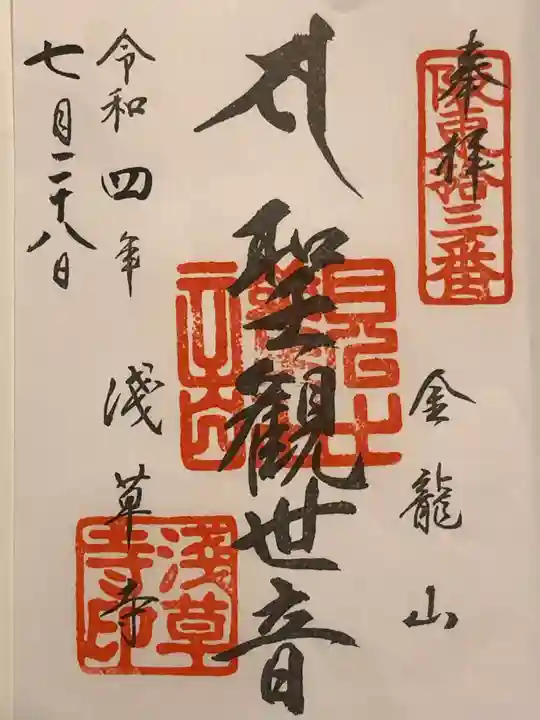 奉拝
坂東拾三番
金龍山
聖観世音
淺草寺
淺草寺印
令和四年
七月二十八日